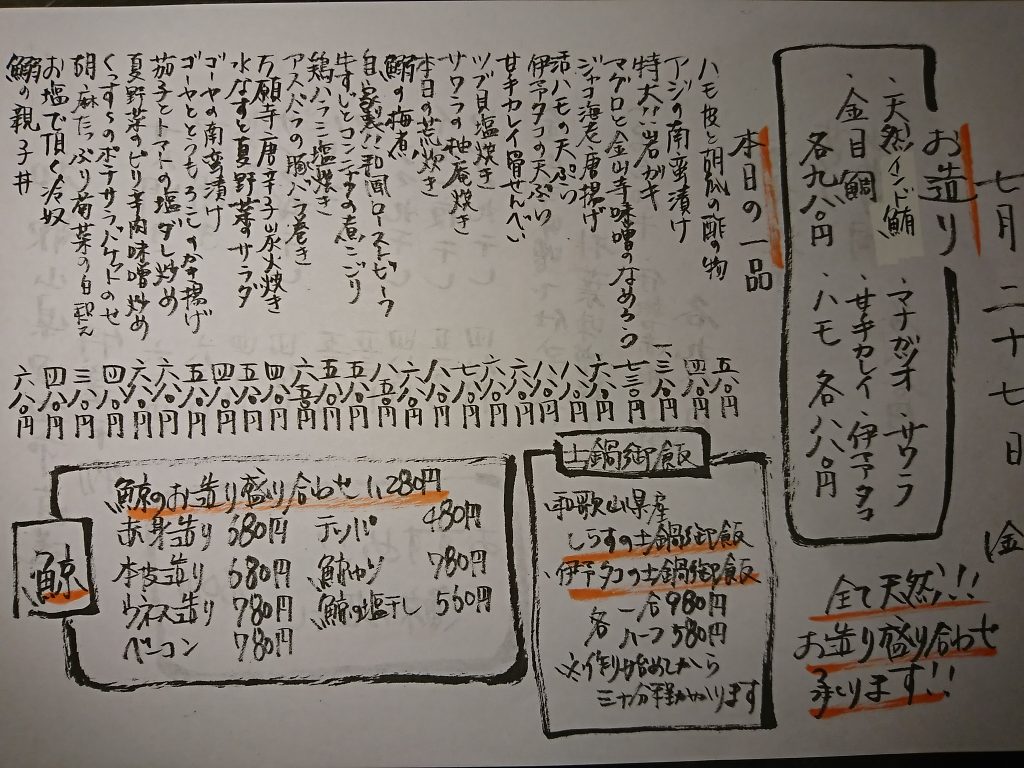 七月二十七日 金
お造り
・天然インド鮪 ・マナガツオ ・サワラ
・金目鯛 ・甘手カレイ ・伊予タコ
各九八〇円 ・ハモ 各八八〇円
全て天然!!!
お造り盛り合わせ
承ります!!
本日の一品
ハモ皮と胡瓜の酢の物 五八〇円
アジの南蛮漬け 四八〇円
特大!!岩ガキ 一、三八〇円
マグロと金山寺味噌のなめろう 七三〇円
ジャコ海老唐揚げ 六八〇円
活ハモの天ぷら 八八〇円
伊予タコの天ぷら 八八〇円
甘手カレイ骨せんべい 六八〇円
ツブ貝塩焼き 六八〇円
サワラの柚庵焼き 七八〇円
本日の荒炊き 八八〇円
鰯の梅煮 六八〇円
自家製!!和風ローストビーフ 八八〇円
牛すじとコンニャクの煮こごり 五八〇円
鶏ハラミ塩焼き 五八〇円
アスパラの豚バラ巻き 六五〇円
万願寺唐辛子炭火焼き 四八〇円
水なすと夏野菜のサラダ 五八〇円
ゴーヤの南蛮漬け 四八〇円
ゴーヤととうもろこしのかき揚げ 五八〇円
茄子とトマトの塩ダレ炒め 六八〇円
夏野菜のピリ辛肉味噌炒め 六八〇円
ポテサラバケットのせ 四八〇円
胡麻たっぷり菊菜の白和え 三八〇円
お塩で頂く冷奴 四八〇円
鰯の親子丼 六八〇円
土鍋御飯
・和歌山県産
しらすの土鍋御飯
・伊予タコの土鍋御飯
各 一合 980円
ハーフ 580円
※作り始めてから
三十分程かかります
鯨
鯨のお造り盛り合わせ 1,280円
赤身造り 680円 テッパ 480円
本皮造り 680円 鯨カツ 780円
ウネス造り 780円 鯨の塩干し 560円
ベーコン 780円